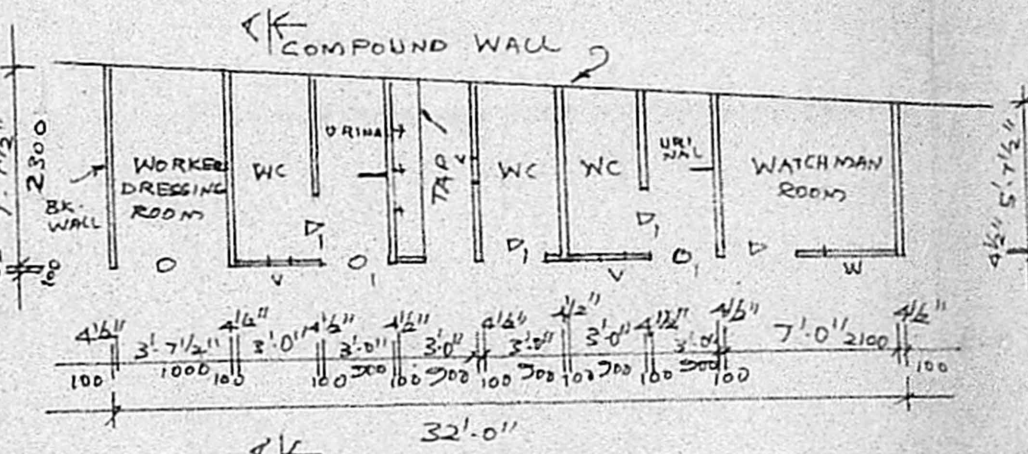 COMPOUND WALL
7'-7 1/2"
2300
100
BK.
WALL
WORKER
DRESSING
ROOM
WC
URINAL
TAP
V
WC
WC
URI
NAL
WATCHMAN
ROOM
D1
D1
D1
D
O
V
O1
V
O1
W
4 1/2" 5'-7 1/2"
4 1/2" 3'-7 1/2" 4 1/2" 3'-0" 4 1/2" 3'-0" 4 1/2" 3'-0" 4 1/2" 3'-0" 4 1/2" 3'-0" 4 1/2" 3'-0" 4 1/2" 7'-0" 2100 4 1/2"
100 1000 100 100 900 100 900 100 900 100 900 100 900 100 100
32'-0"